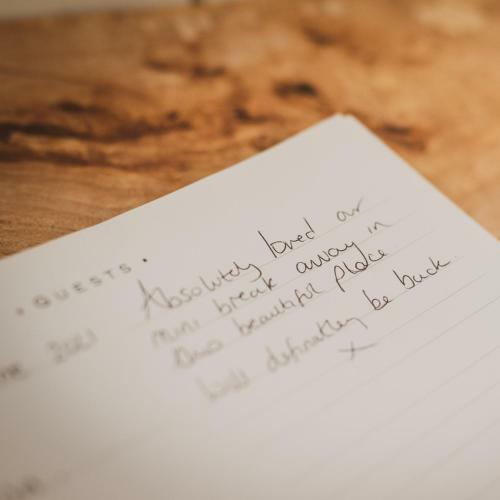 • GUESTS •
2021
Absolutely loved our
mini break away in
this beautiful place
will definatley be back
x